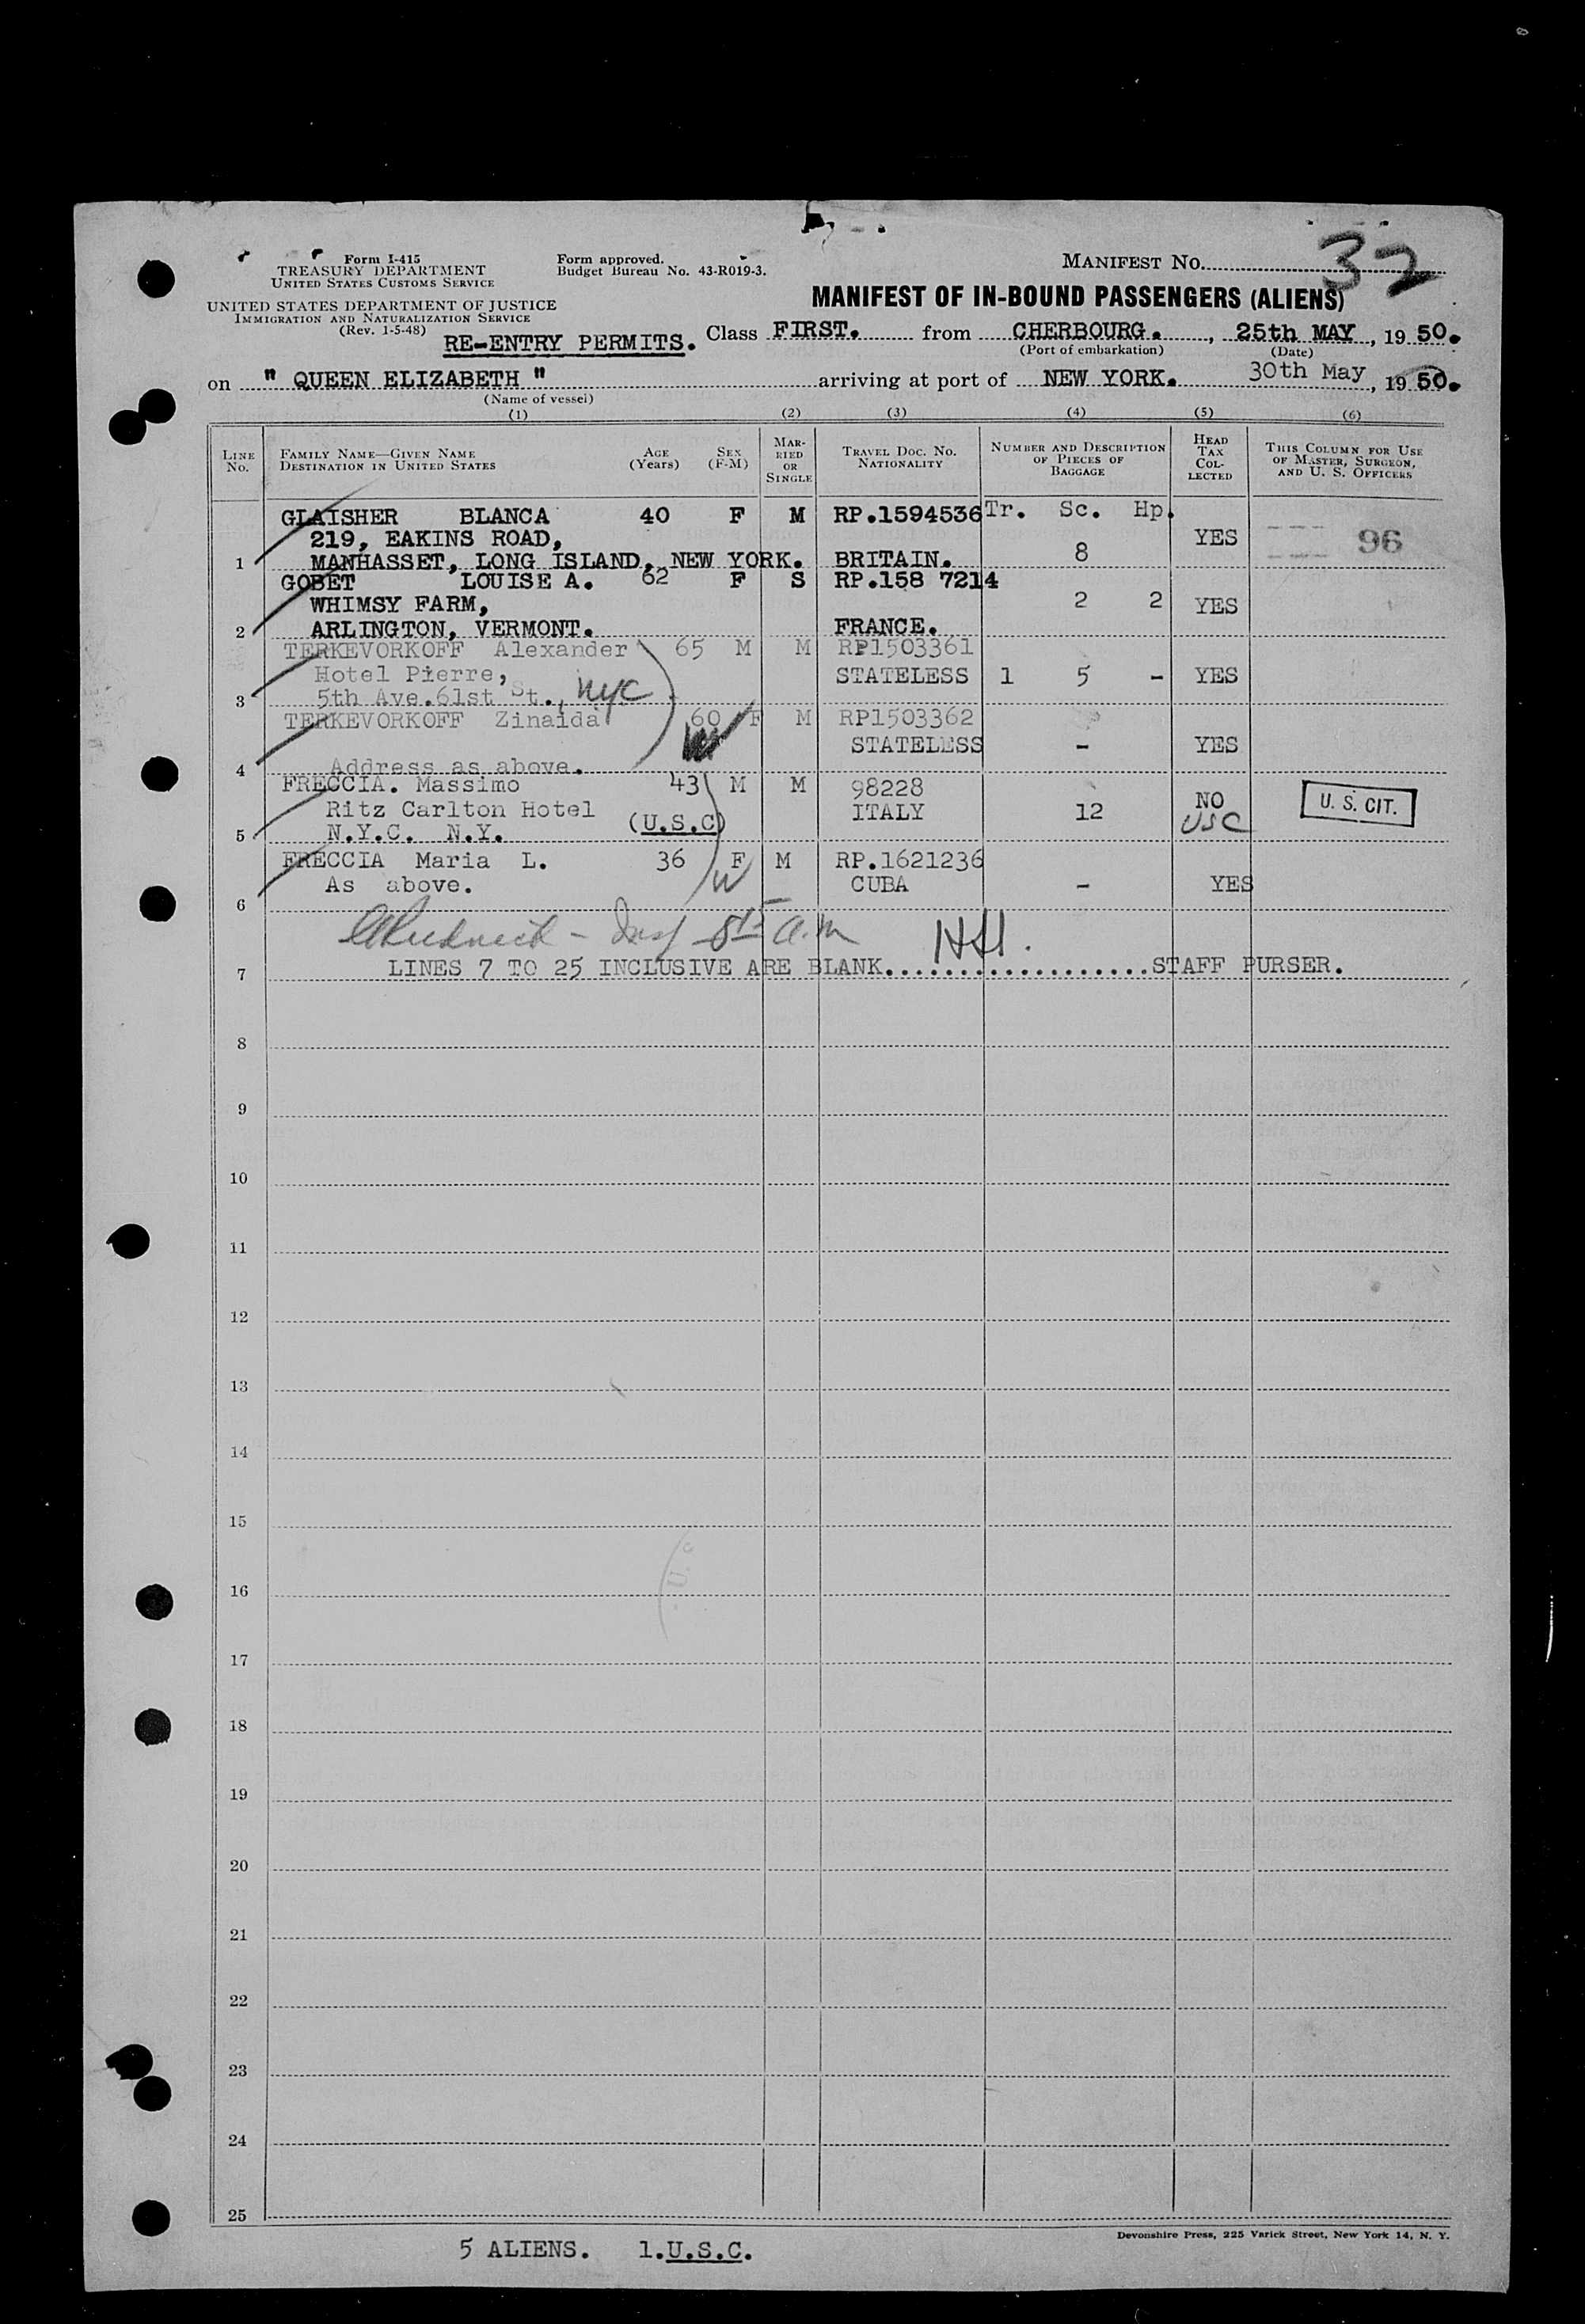 Form I-415
TREASURY DEPARTMENT
UNITED STATES CUSTOMS SERVICE
UNITED STATES DEPARTMENT OF JUSTICE
IMMIGRATION AND NATURALIZATION SERVICE
(Rev. 1-5-48)
Form approved.
Budget Bureau No. 43-R019-3.
MANIFEST NO. 32
MANIFEST OF IN-BOUND PASSENGERS (ALIENS)
RE-ENTRY PERMITS. Class FIRST. from CHERBOURG. , 25th MAY , 19 50.
(Port of embarkation) (Date)
on " QUEEN ELIZABETH " arriving at port of NEW YORK. 30th May , 19 50.
(Name of vessel)
(1) (2) (3) (4) (5) (6)
LINE NO. FAMILY NAME—GIVEN NAME DESTINATION IN UNITED STATES AGE (Years) SEX (F-M) MARRIED OR SINGLE TRAVEL DOC. NO. NATIONALITY NUMBER AND DESCRIPTION OF PIECES OF BAGGAGE HEAD TAX COLLECTED THIS COLUMN FOR USE OF MASTER, SURGEON, AND U. S. OFFICERS
GLAISHER BLANCA 40 F M RP.1594536 Tr. Sc. Hp.
219, EAKINS ROAD, YES 96
1 MANHASSET, LONG ISLAND, NEW YORK. BRITAIN. 8
GOBET LOUISE A. 62 F S RP.158 7214
WHIMSY FARM, 2 2 YES
2 ARLINGTON, VERMONT. FRANCE.
TERKEVORKOFF Alexander 65 M M RP1503361
Hotel Pierre, STATELESS 1 5 - YES
3 5th Ave.61st St., NYC
TERKEVORKOFF Zinaida 60 F M RP1503362
STATELESS - YES
4 Address as above.
FRECCIA. Massimo 43 M M 98228
Ritz Carlton Hotel (U.S.C) ITALY 12 NO U. S. CIT.
5 N.Y.C. N.Y. USC
FRECCIA Maria L. 36 F M RP.1621236
As above. W CUBA - YES
6
a.m
7 LINES 7 TO 25 INCLUSIVE ARE BLANK....................STAFF PURSER.
8
9
10
11
12
13
14
15
16
17
18
19
20
21
22
23
24
25
Devonshire Press, 225 Varick Street, New York 14, N. Y.
5 ALIENS. 1.U.S.C.